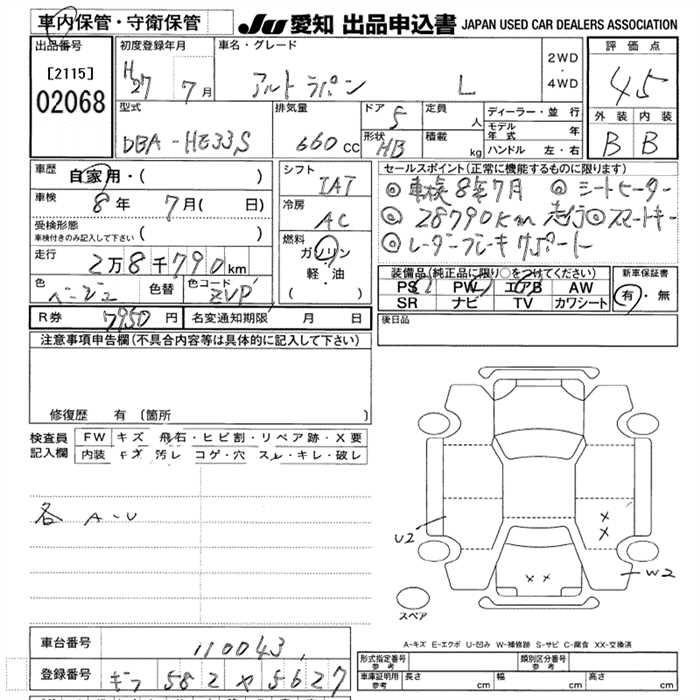 車内保管・守衛保管
JU 愛知 出品申込書 JAPAN USED CAR DEALERS ASSOCIATION
出品番号
[2115]
02068
初度登録年月
H27 7月
車名・グレード
アルト ラパン L
2WD
・
4WD
評価点
4.5
外装 内装
B B
型式
DBA-HE33S
排気量
660 CC
ドア
5
形状
HB
定員 人
積載 kg
ディーラー・並行
モデル年式 年
ハンドル 左・右
車歴
自家用・( )
車検
8年 7月 ( 日)
受検形態
車検付きのみ記入して下さい ( )
走行
2万8千790km
色
ベージュ
色替
色コード
ZVP
シフト
IAT
冷房
AC
燃料
ガソリン
軽・油
( )
セールスポイント(正常に機能するものに限ります)
◎車検8年7月 ◎シートヒーター
◎28790Km走行◎スマートキー
◎レーダーブレーキサポート
装備品(純正品に限り○をつけてください)
PS PW エアB AW
SR ナビ TV カワシート
新車保証書
有・無
後日品
R券 7950円
名変通知期限 月 日
注意事項申告欄(不具合内容等は具体的に記入して下さい)
修復歴 有 〔箇所 〕
検査員記入欄
FW キズ・飛石・ヒビ割・リペア跡・X要
内装 キズ・汚レ・コゲ・穴・スレ・キレ・破レ
各 A-U
U2
×
×
××
W2
スペア
A-キズ E-エクボ U-凹み W-補修跡 S-サビ C-腐食 XX-交換済
車台番号
110043
登録番号
ギフ 582 や 5627
形式指定番号 参考
類別区分番号 参考
車庫証明用 参考
長さ cm 幅 cm 高さ cm